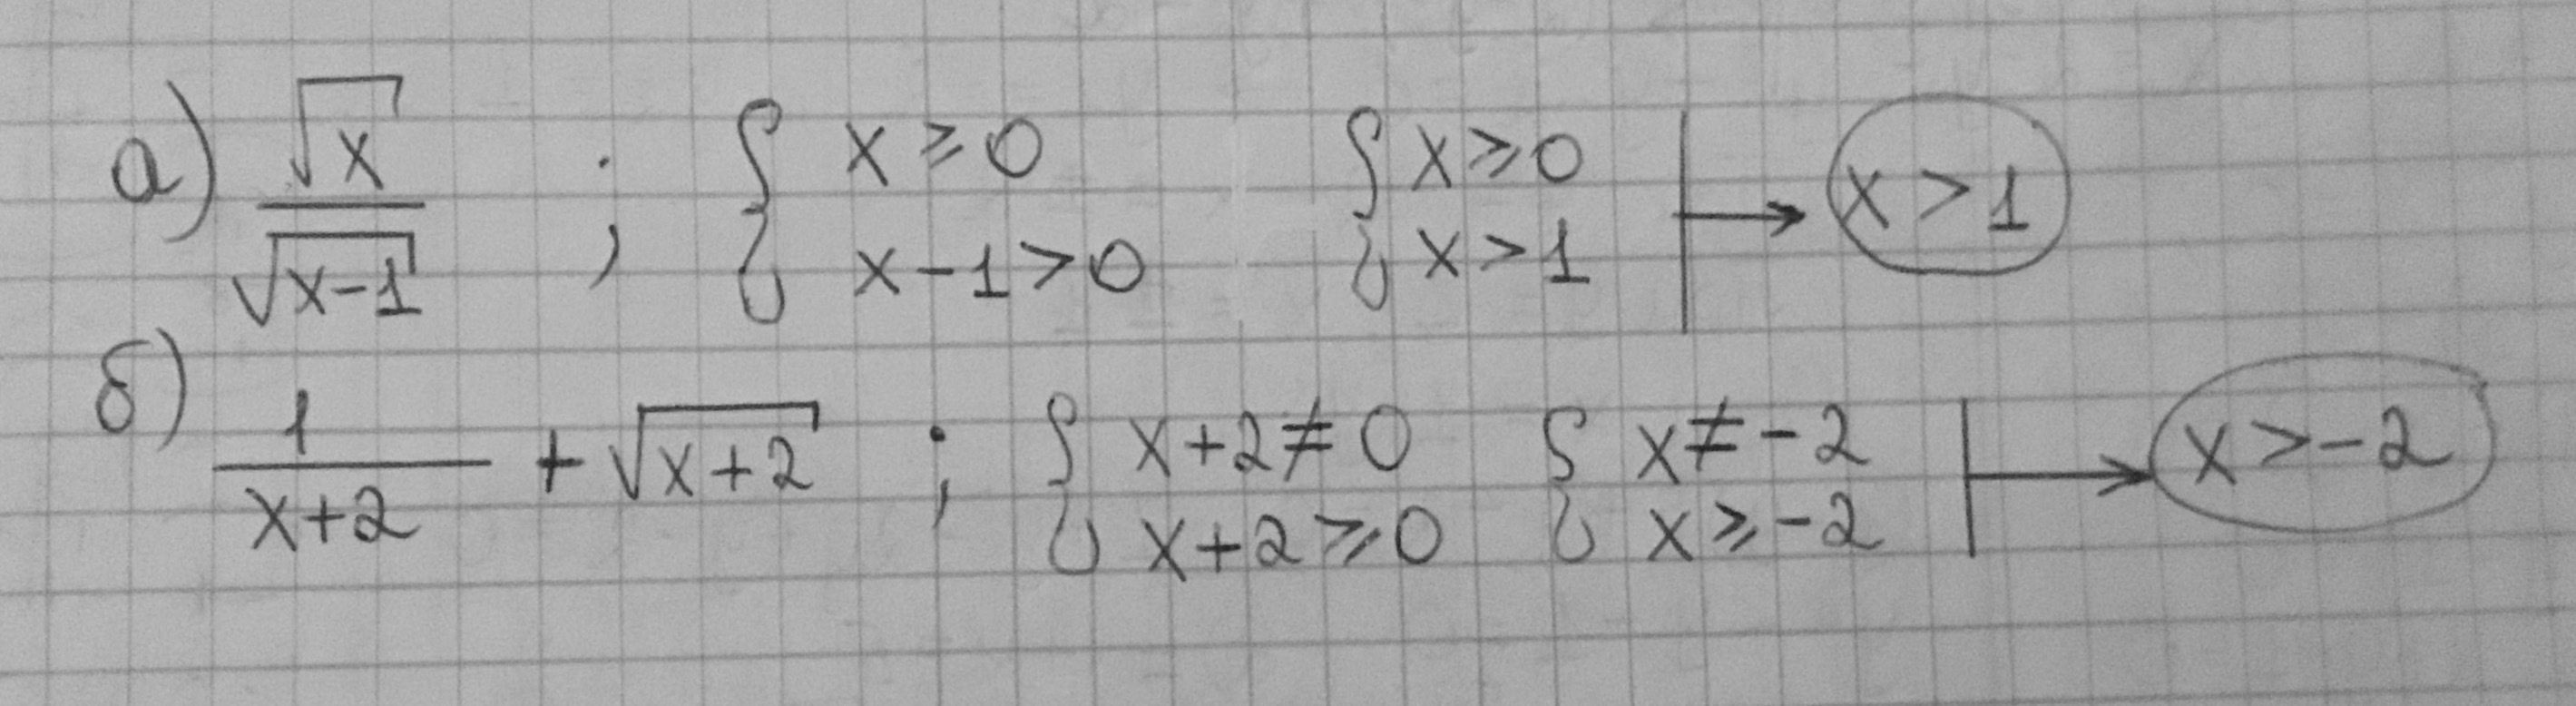 а) √x / √(x-1) ; { x ≥ 0 { x ≥ 0 | → x > 1
x-1 > 0 x > 1
б) 1 / (x+2) + √(x+2) ; { x+2 ≠ 0 { x ≠ -2 | → x > -2
x+2 ≥ 0 x ≥ -2